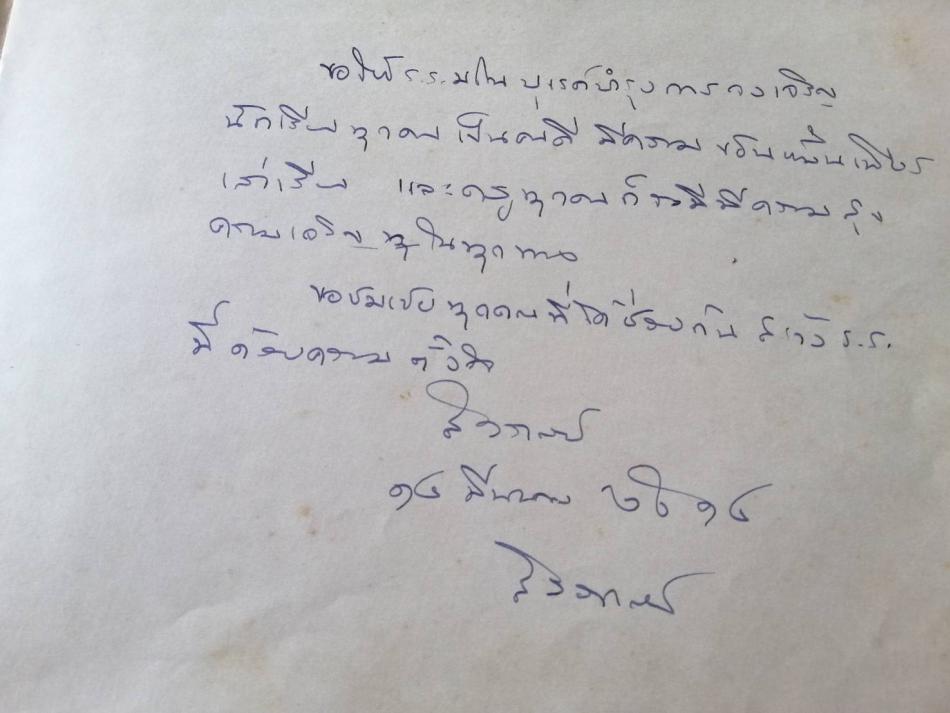 ขอให้ ร.ร. มโนบุเรศบำรุงการ จงเจริญ
นักเรียน ทุกคน เป็นคนดี มีความ ขยันหมั่นเพียร
เล่าเรียน และครู ทุกคนก็ขอให้มีความสุข
ความเจริญ ในทุกทาง
ขอชมเชย ทุกคนที่ได้ช่วยกัน สร้าง ร.ร.
นี้ ด้วยความ ตั้งใจ
๑๔ มีนาคม ๒๕๑๔